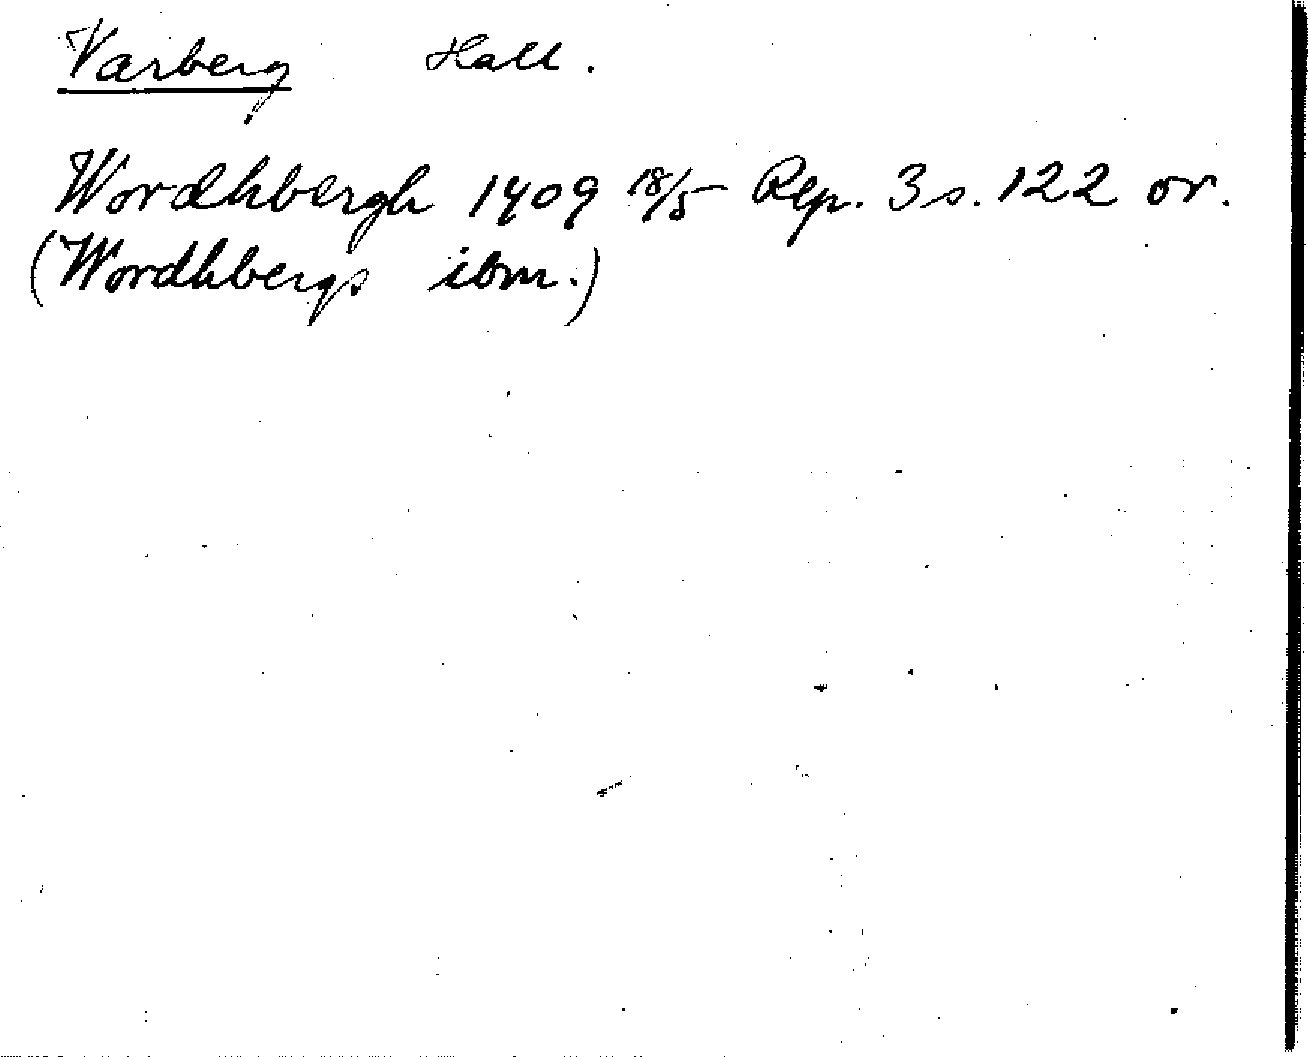 Varberg Hall.
Wordhbergh 1409 18/5 Rep. 3 s. 122 or.
(Wordhbergs ibm.)